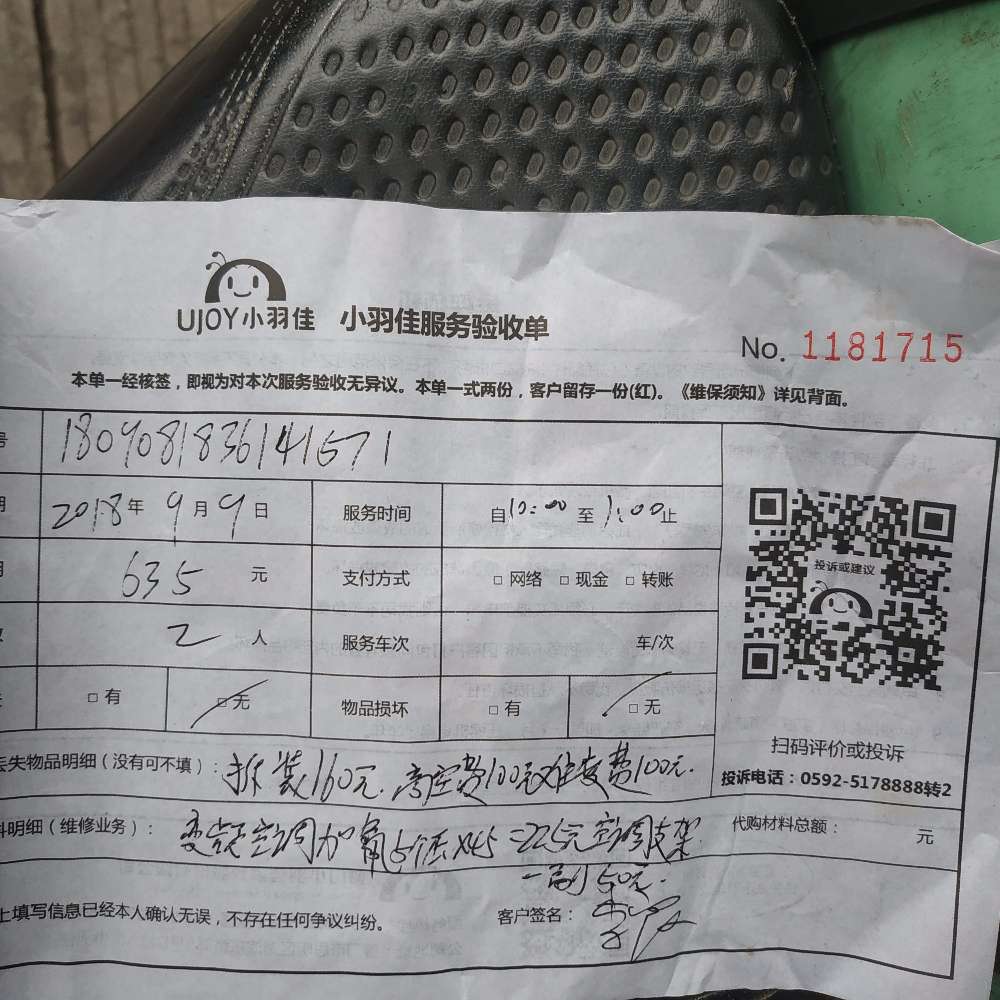 UJOY小羽佳 小羽佳服务验收单
No. 1181715
本单一经核签，即视为对本次服务验收无异议。本单一式两份，客户留存一份(红)。《维保须知》详见背面。
号 1809081836141571
期 2018年9月9日 服务时间 自10:00至1:00止
用 635元 支付方式 □网络 □现金 □转账
数 2人 服务车次 车/次
□有 □无 物品损坏 □有 □无
投诉或建议
扫码评价或投诉
投诉电话：0592-5178888转2
丢失物品明细（没有可不填）：拆装160元.高空费100元 费100元.
料明细（维修业务）：变频空调加氟5个压X45=225元空调支架
一副50元.
代购材料总额： 元
上填写信息已经本人确认无误，不存在任何争议纠纷。 客户签名：